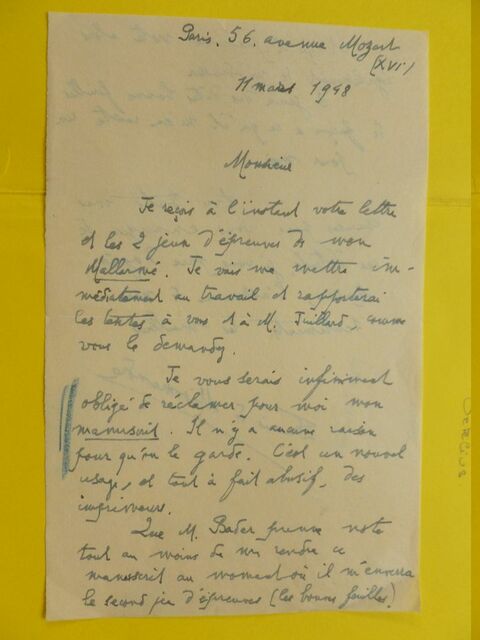 Paris. 56. avenue Mozart
(XVIe)
11 mars 1948
Monsieur
Je reçois à l'instant votre lettre
et les 2 jeux d'épreuves de mon
Mallarmé. Je vais me mettre im-
médiatement au travail et rapporterai
les textes à vous et à M. Juillard, comme
vous le demandez.
Je vous serais infiniment
obligé de réclamer pour moi mon
manuscrit. Il n'y a aucune raison
pour qu'on le garde. C'est un nouvel
usage, et tout à fait abusif, des
imprimeurs.
Que M. Bader prenne note
tout au moins de me rendre ce
manuscrit au moment où il m'enverra
le second jeu d'épreuves (les bonnes feuilles).